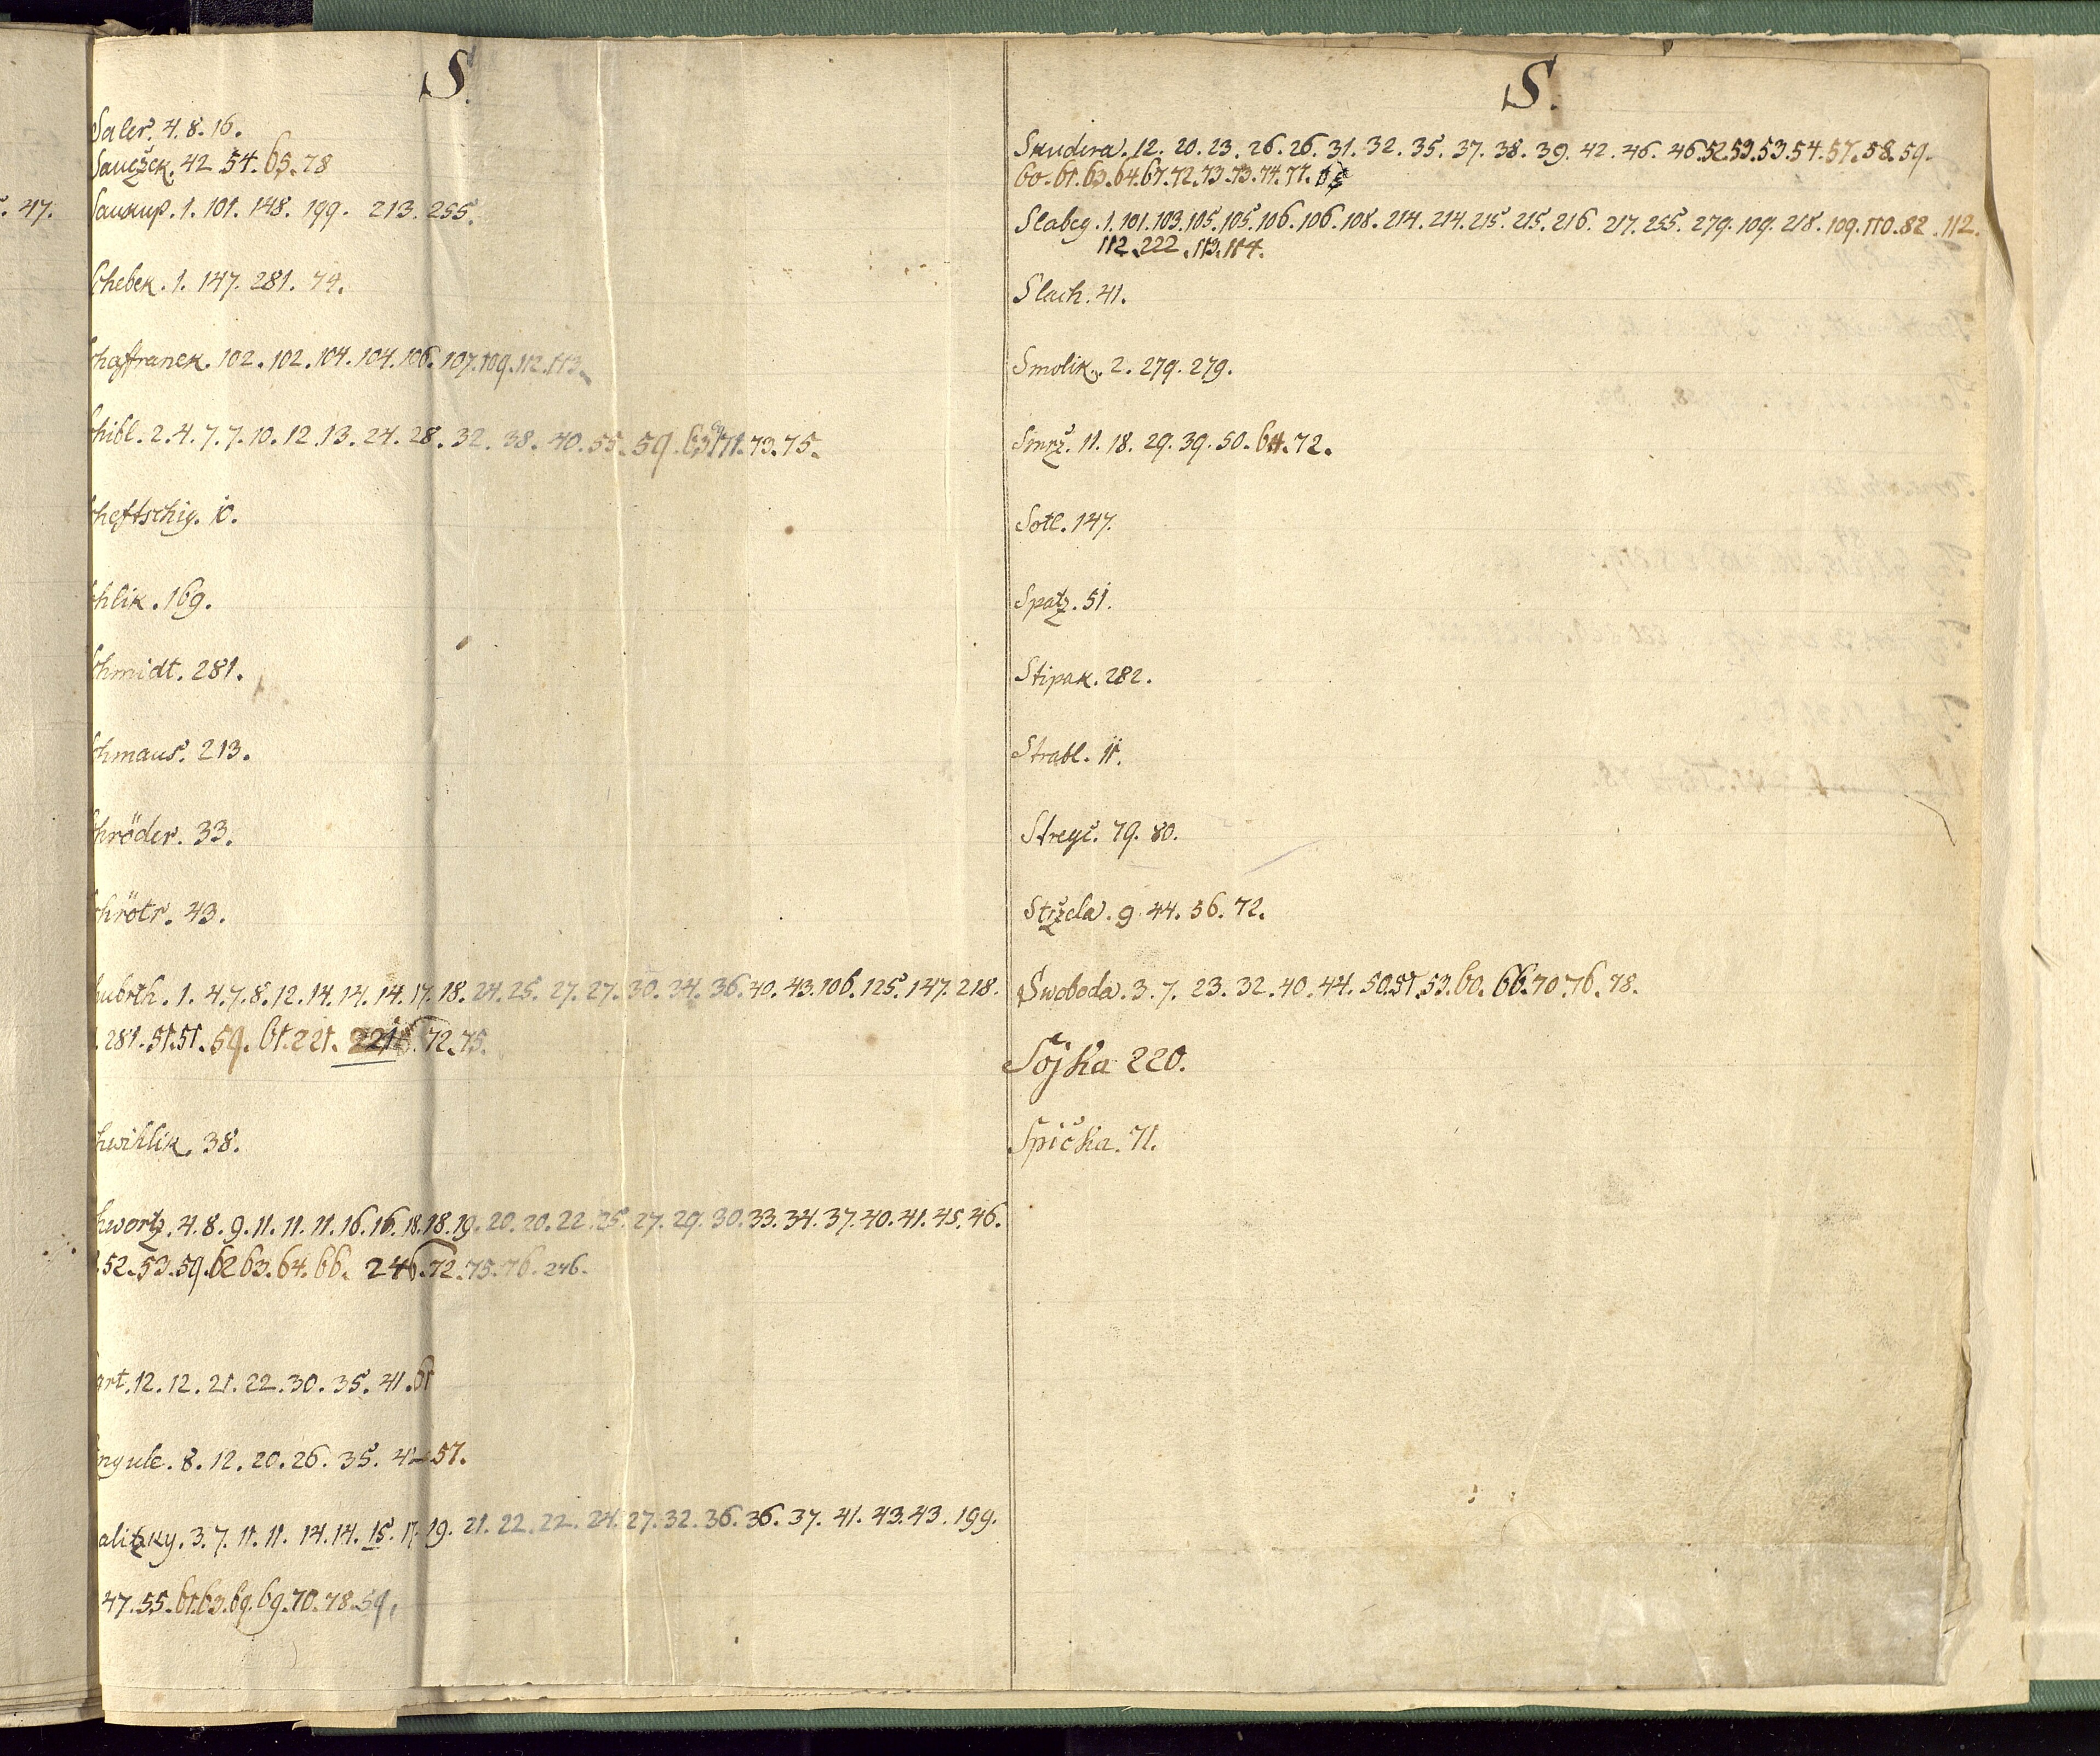 S.
Saler. 4. 8. 16.
Sauczek. 42. 54. 65. 78
47.
Saukup. 1. 101. 148. 199. 213. 255.
Schebek. 1. 147. 281. 74.
chaffranek. 102. 102. 104. 104. 106. 107. 109. 112. 113.
chibl. 2. 4. 7. 7. 10. 12. 13. 24. 28. 32. 38. 40. 55. 59. 63. 71. 73. 75.
cheftschig. 10.
chlik. 169.
chmidt. 281.
chmaus. 213.
chröder. 33.
chrötr. 43.
hubrth. 1. 4. 7. 8. 12. 14. 14. 14. 17. 18. 24. 25. 27. 27. 30. 34. 36. 40. 43. 106. 125. 147. 218.
281. 51. 51. 59. 61. 221. 72. 75.
hwihlik. 38.
hwortz. 4. 8. 9. 11. 11. 11. 16. 16. 18. 18. 19. 20. 20. 22. 25. 27. 29. 30. 33. 34. 37. 40. 41. 45. 46.
52. 53. 59. 62 63. 64. 66. 246. 72. 75. 76. 246.
grt. 12. 12. 21. 22. 30. 35. 41. 61
ngule. 8. 12. 20. 26. 35. 57.
alitzky. 3. 7. 11. 11. 14. 14. 15. 17. 19. 21. 22. 22. 24. 27. 32. 36. 36. 37. 41. 43. 43. 199.
47. 55. 61. 63. 69. 69. 70. 78. 59.
S.
Skudera. 12. 20. 23. 26. 26. 31. 32. 35. 37. 38. 39. 42. 46. 46. 52. 53. 53. 54. 57. 58. 59.
60. 61. 63. 64. 67. 72. 73. 73. 74. 77.
Slabey. 1. 101. 103. 105. 105. 106. 106. 108. 214. 214. 215. 215. 216. 217. 255. 279. 109. 218. 109. 110. 82. 112.
112. 222. 113. 114.
Slach. 41.
Smolik. 2. 279. 279.
Smrž. 11. 18. 29. 39. 50. 64. 72.
Sotl. 147.
Spatz. 51.
Stipak. 282.
Strabl. 11.
Streyc. 79. 80.
Strzela. 9. 44. 56. 72.
Swoboda. 3. 7. 23. 32. 40. 44. 50. 51. 53. 60. 66. 70. 76. 78.
Sojka 220.
Spička. 71.